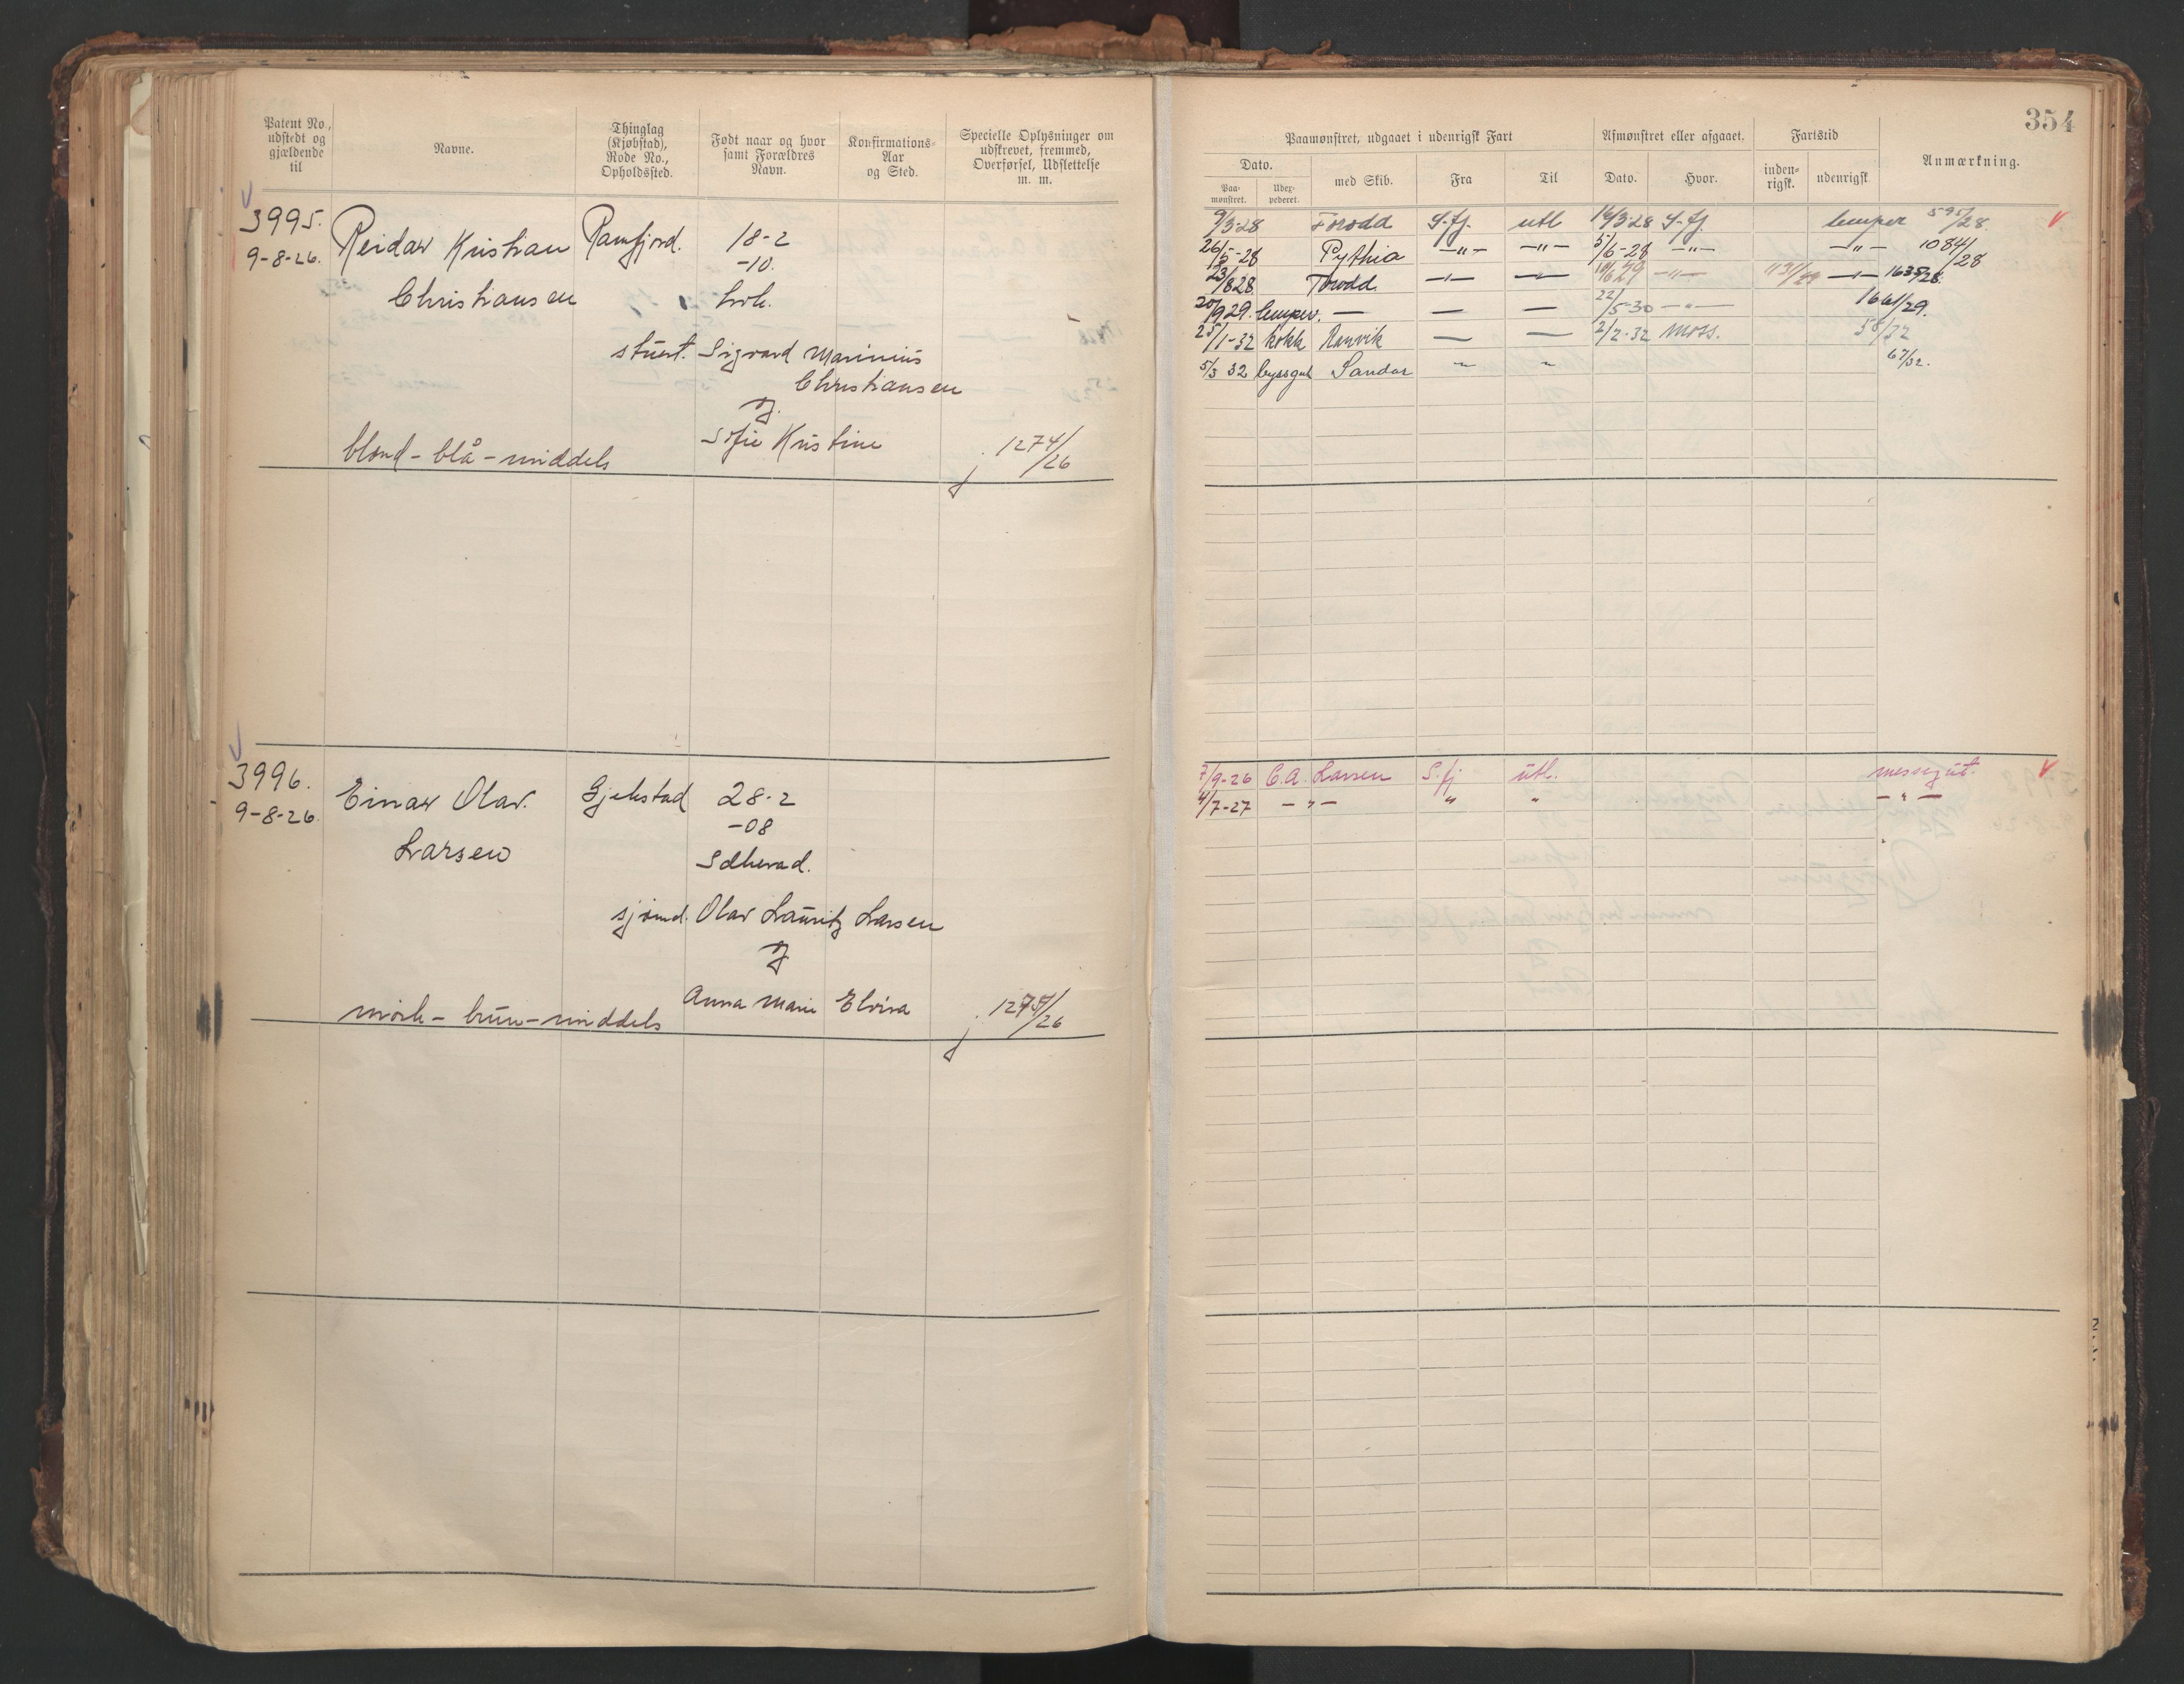 Patent No.,
udstedt og
gjældende
til
Navne.
Thinglag
(Kjøbstad),
Rode No.,
Opholdssted.
Født naar og hvor
samt Forældres
Navn.
Konfirmations-
Aar
og Sted.
Specielle Oplysninger om
udskrevet, fremmed,
Overførsel, Udslettelse
m. m.
3995.
9-8-26.
Reidar Kristian Ramfjord. 18-2
-10.
Christiansen
stuert. Sigvard Marinius
Christiansen
Sofie Kristine
blond - blå - middels
1274/26
3996.
9-8-26.
Einar Olav. Gjekstad 28-2
-08
Larsen
Sdherad.
sjømd. Olav Lauritz Larsen
Anna Marie Elvira
mörk - brun - middels
1275/26
354
Paamønstret, udgaaet i udenrigsk Fart
Afmønstret eller afgaaet.
Fartstid
Anmærkning.
Dato.
Paa-
mønstret.
Uder-
pederet.
med Skib.
Fra
Til
Dato.
Hvor.
inden-
rigsk.
udenrigsk
9/3-28 Torodd S.fj. utl 16/3-28 S.fj. lemper 595/28.
26/5-28 Pythia -"- -"- 5/6-28 -"- -"- 1084/28
23/8 28. Torodd. -"- 1635/28.
20/9 29. lemper. — — — 22/5-30 -"- 1661/29.
25/1-32 kokk Ranvik — — 2/2-32 Moss. 58/32
5/3 32 byssgut Sandar 67/32.
7/9-26 C.A. Larsen S.fj utl. messegut.
4/7-27 -"- " " -"-